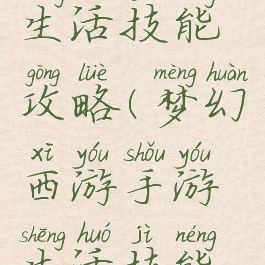 生活技能
gōng lüè mèng huàn
攻略(梦幻
xī yóu shǒu yóu
西游手游
shēng huó jì néng
生活技能